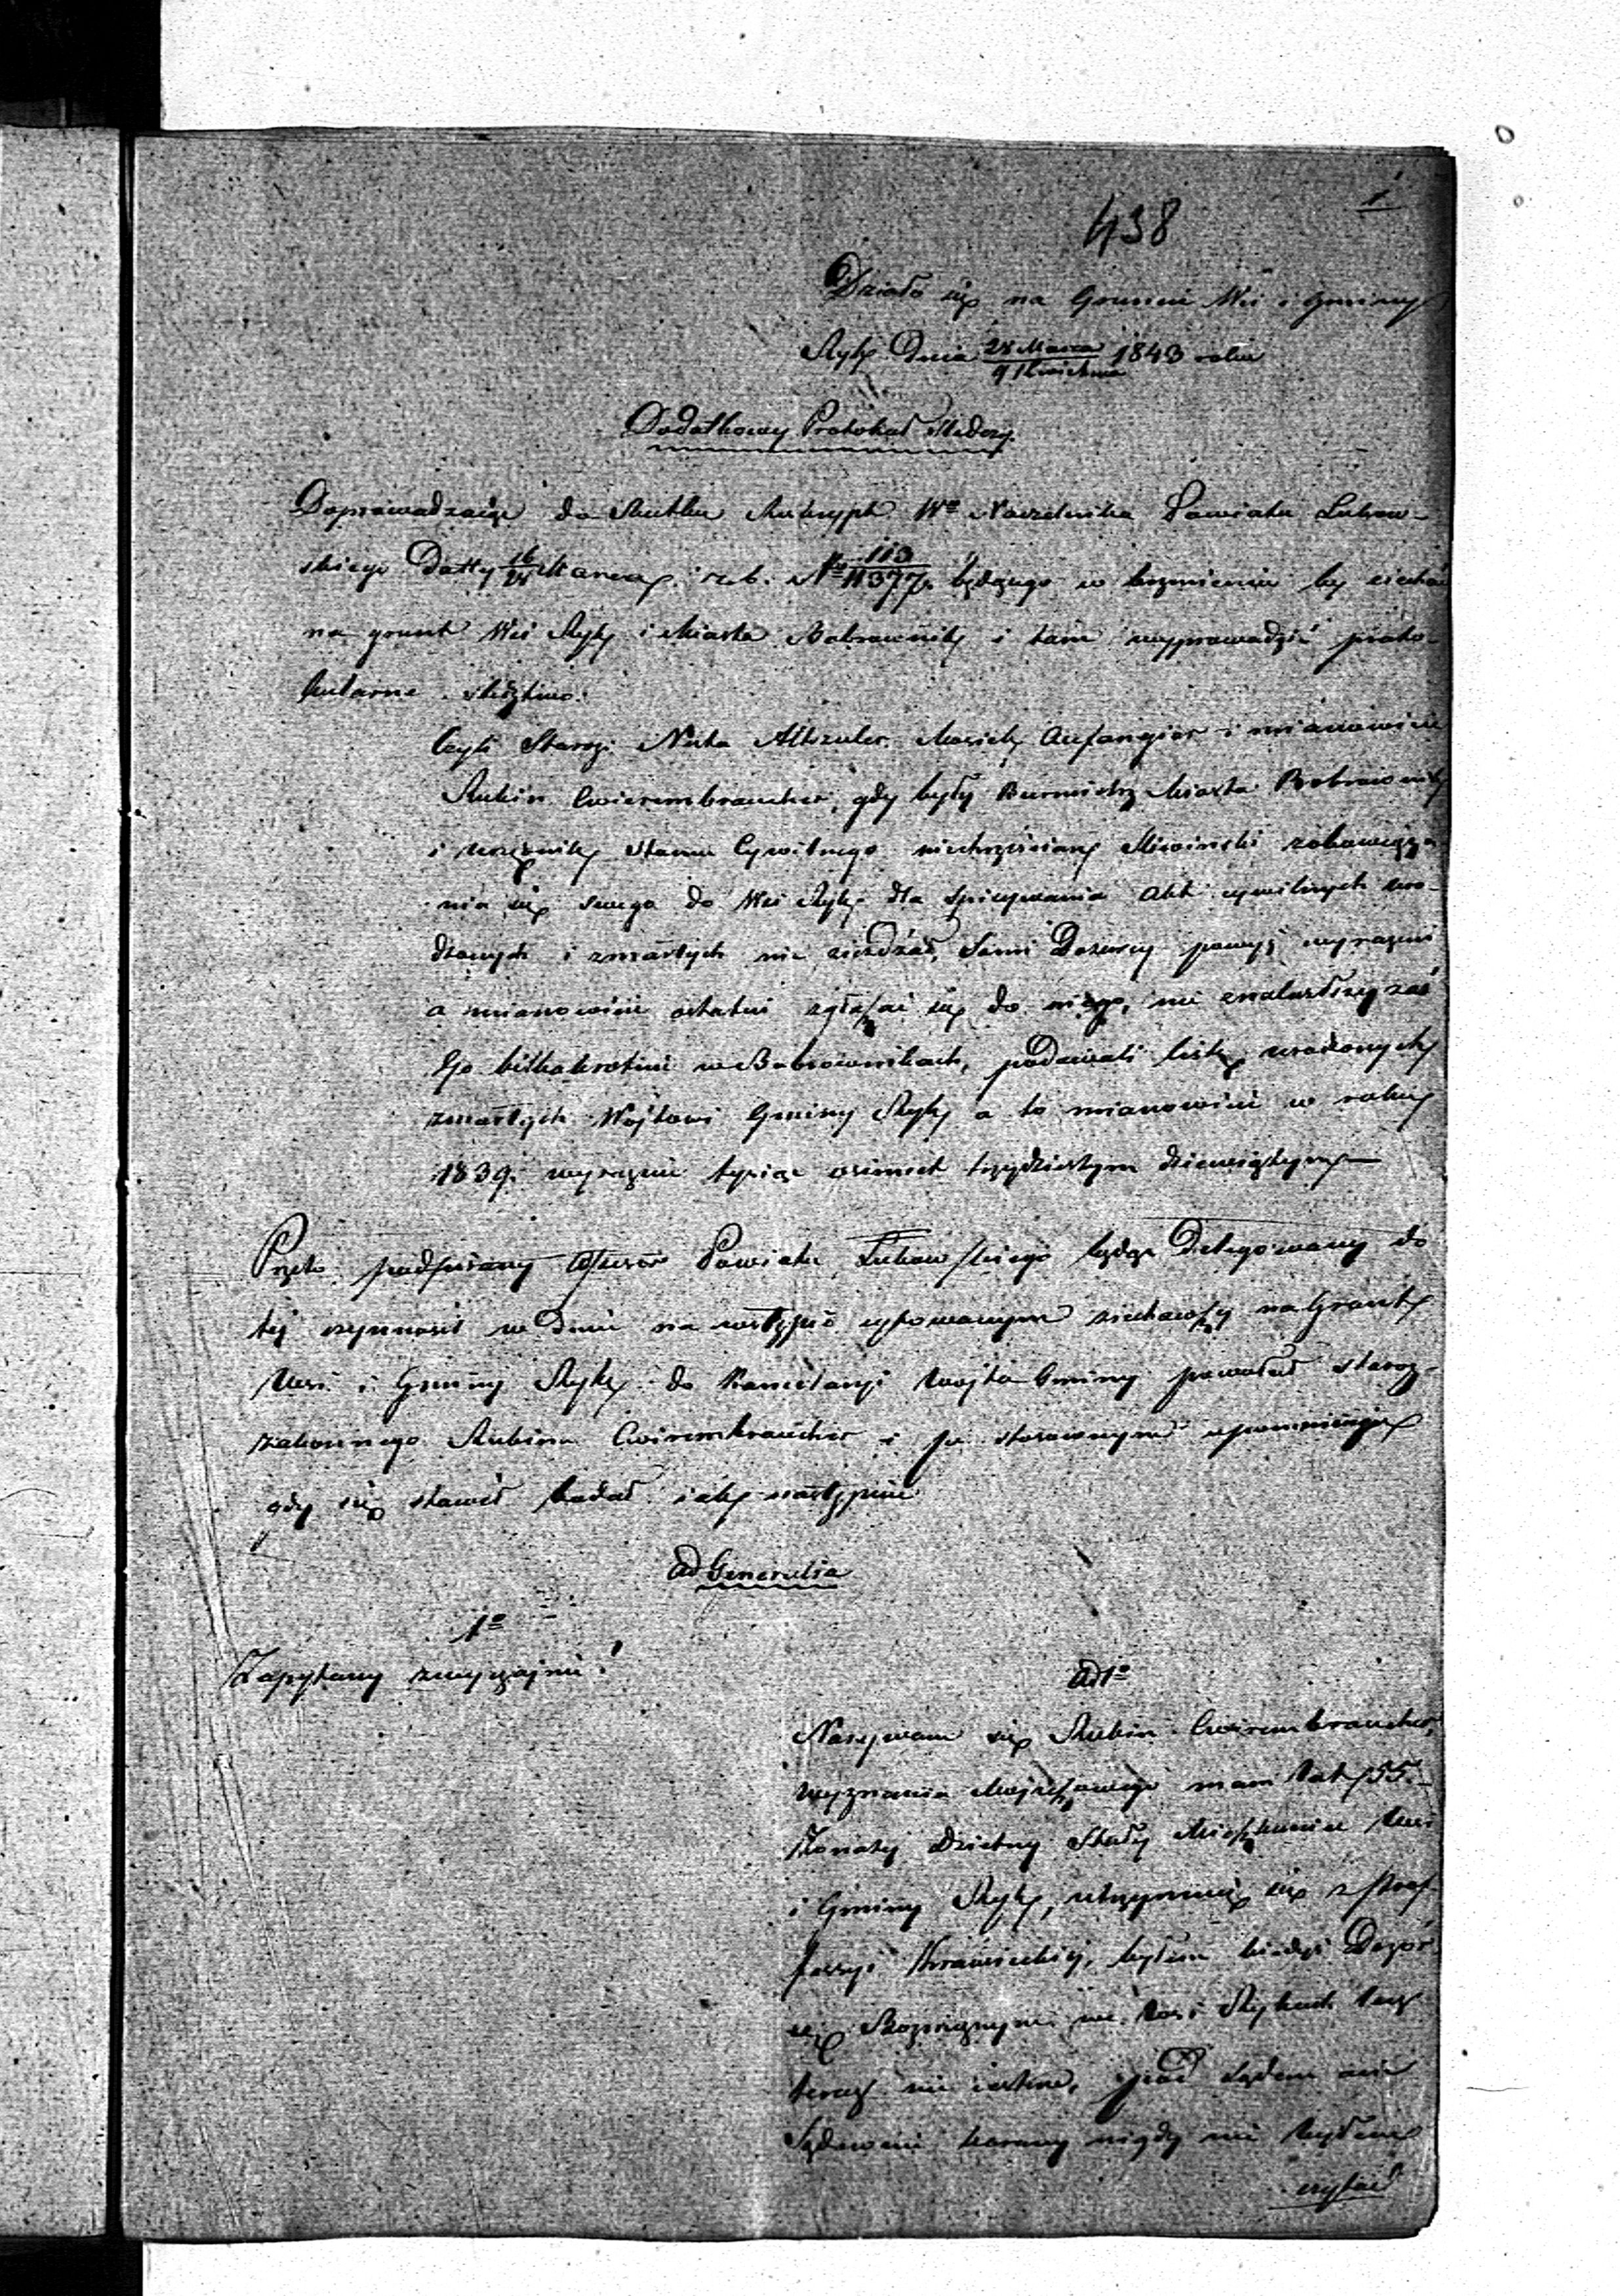 1.
438
Działo się na Gruncie Wsi i Gminy
Ryki Dnia 28 Marca / 9 Kwietnia 1843 roku
Dodatkowy Protokuł Śledczy.
Doprowadzając do skutku Reskrypt Wo Naczelnika Powiatu Łukow-
skiego Datty 16/28 Marca r. b. No 113/11377. będącego w brzmieniu by ziechać
na grunt Wsi Ryki i Miasta Bobrowniki i tam wyprowadzić proto-
kularne śledztwo.
Czyli Starozi. Nuta Altszuler, Moszek Aufangier i mianowicie
Rubin Cwierembraucher, gdy były Burmistrz Miasta Bobrowniki
i Urzędnik Stanu Cywilnego niechrześcian Śliwiński zobowiąza-
nia się swego do Wsi Ryki dla spisywania Akt cywilnych uro-
dzonych i zmarłych nie zieżdżał, Sami Dozorcy powyż wyrażeni
a mianowicie ostatni zgłaszać się do niego, nie znalazłszy zaś
Go kilkakrotnie w Bobrownikach, podawali listę urodzonych
zmarłych Wójtowi Gminy Ryki a to mianowicie w roku
1839. wyraźnie tysiąc osimset trzydziestym dziewiątym —
Przeto podpisany Assesor Powiatu Łukowskiego będąc Delegowany do
tej czynności w Dniu na wstępie cytowanym ziechawszy na Grunt
Wsi i Gminy Ryki do Kancelaryi Wójta Gminy powołał staroz-
zakonnego Rubina Cwirembraucher i po stosownym upomnieniu
gdy się stawił badał iak następuie
Ad Generalia
1o
Zapytany zwyczajnie!
Ad 1o
Nazywam się Rubin Cwirembraucher,
wyznania Mojżeszowego mam lat 55.
Żonaty Dzietny Stały Mieszkaniec Wsi
i Gminy Ryki, utrzymuię się z prof-
fessyi Krawieckiej, byłem kiedyś Dozor-
cą Bożniczym we Wsi Rykach lecz
teraz nie iestem, pod sądem ani
Sądownie karany nigdy nie byłem
czytać